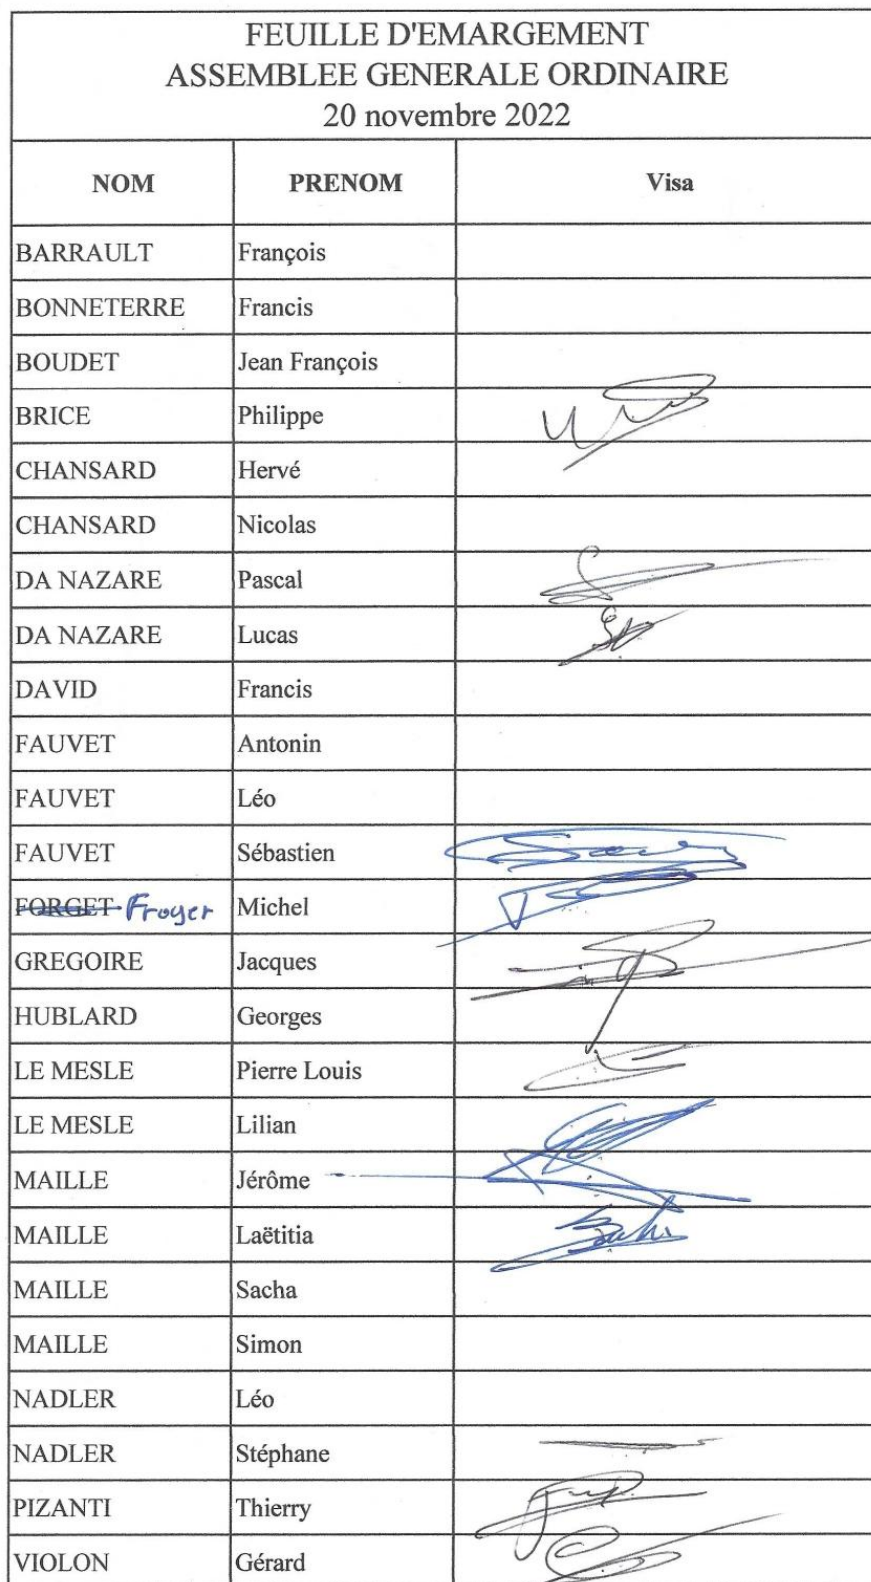 FEUILLE D'EMARGEMENT
ASSEMBLEE GENERALE ORDINAIRE
20 novembre 2022
NOM PRENOM Visa
BARRAULT François
BONNETERRE Francis
BOUDET Jean François
BRICE Philippe
CHANSARD Hervé
CHANSARD Nicolas
DA NAZARE Pascal
DA NAZARE Lucas
DAVID Francis
FAUVET Antonin
FAUVET Léo
FAUVET Sébastien
FORGET Froger Michel
GREGOIRE Jacques
HUBLARD Georges
LE MESLE Pierre Louis
LE MESLE Lilian
MAILLE Jérôme
MAILLE Laëtitia
MAILLE Sacha
MAILLE Simon
NADLER Léo
NADLER Stéphane
PIZANTI Thierry
VIOLON Gérard